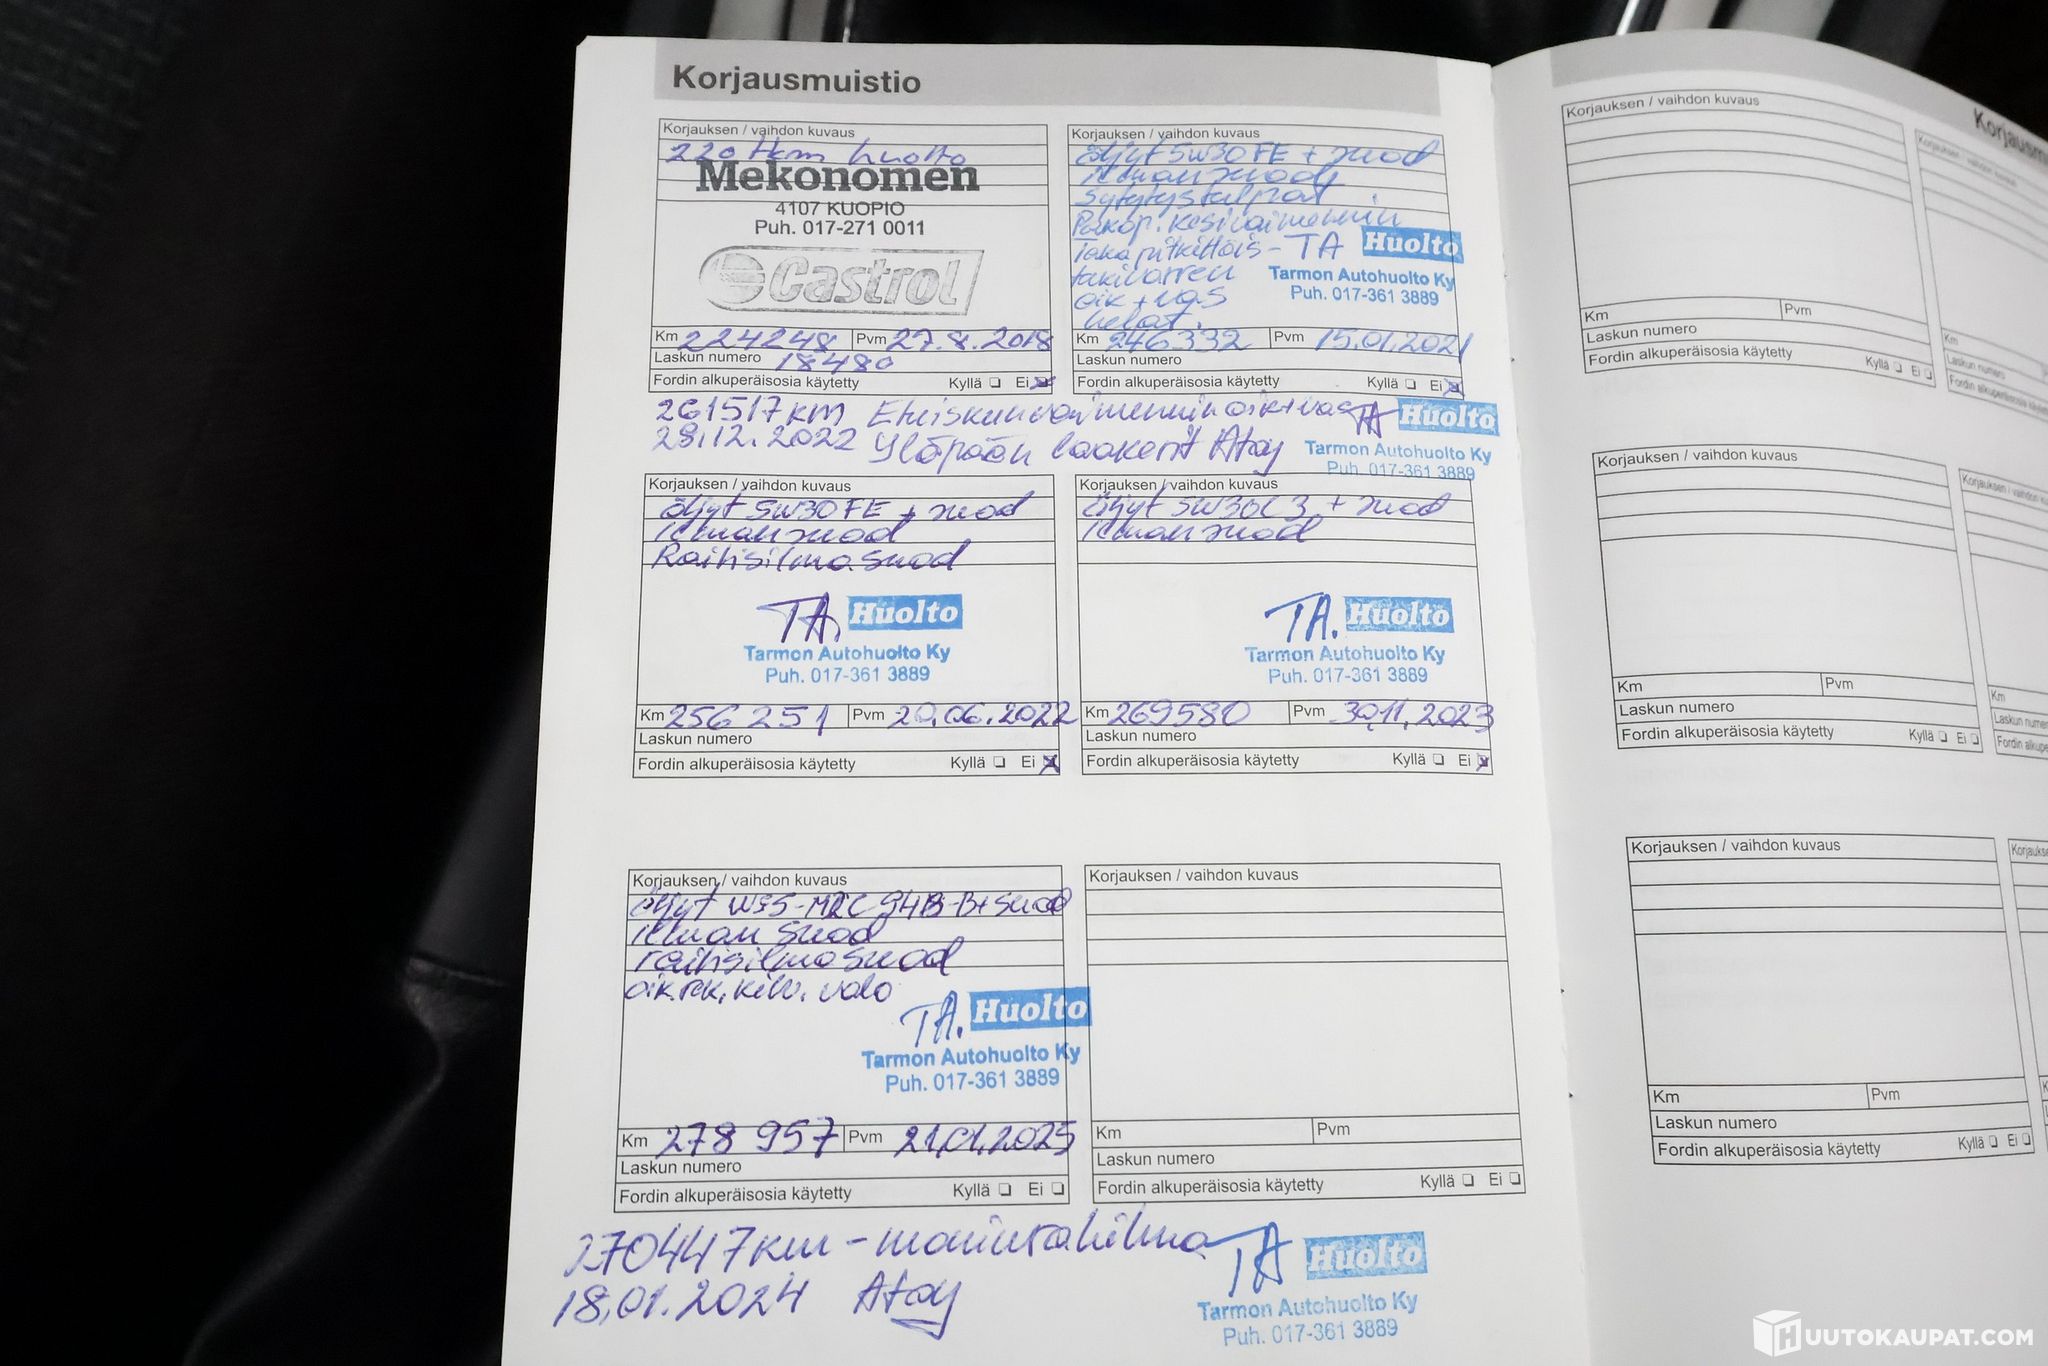 Korjausmuistio
Korjauksen / vaihdon kuvaus
220 tkm huolto
Mekonomen
4107 KUOPIO
Puh. 017-271 0011
Castrol
Km 224248 Pvm 27.8.2018
Laskun numero 18480
Fordin alkuperäisosia käytetty Kyllä Ei
Korjauksen / vaihdon kuvaus
öljyt 5W30FE + suod
ilmansuod
Sytytystulpat
Pakop. keskivaimennin
Taka pitkittäis-
tukivarren
oik + vas
helat.
TA Huolto
Tarmon Autohuolto Ky
Puh. 017-361 3889
Km 246332 Pvm 15.01.2021
Laskun numero
Fordin alkuperäisosia käytetty Kyllä Ei
261517 KM Etuiskunvaimennin oik+vas
28.12.2022 Yläpään laakerit
TA Huolto
Tarmon Autohuolto Ky
Puh. 017-361 3889
Korjauksen / vaihdon kuvaus
öljyt 5W30FE + suod
ilmansuod
Raitisilmasuod
TA. Huolto
Tarmon Autohuolto Ky
Puh. 017-361 3889
Km 256 251 Pvm 20.06.2022
Laskun numero
Fordin alkuperäisosia käytetty Kyllä Ei
Korjauksen / vaihdon kuvaus
öljyt 5W30C3 + suod
ilmansuod
TA. Huolto
Tarmon Autohuolto Ky
Puh. 017-361 3889
Km 269580 Pvm 30.11.2023
Laskun numero
Fordin alkuperäisosia käytetty Kyllä Ei
Korjauksen / vaihdon kuvaus
öljyt WSS-M2C 948-B+suod
ilman suod
raitisilmasuod
oik. rek. kilv. valo
TA. Huolto
Tarmon Autohuolto Ky
Puh. 017-361 3889
Km 278 957 Pvm 21.01.2025
Laskun numero
Fordin alkuperäisosia käytetty Kyllä Ei
Korjauksen / vaihdon kuvaus
Km Pvm
Laskun numero
Fordin alkuperäisosia käytetty Kyllä Ei
270447 km - moniurahihna
18.01.2024
TA Huolto
Tarmon Autohuolto Ky
Puh. 017-361 3889
Korjauksen / vaihdon kuvaus
Km Pvm
Laskun numero
Fordin alkuperäisosia käytetty Kyllä Ei
Korjauksen / vaihdon kuvaus
Km Pvm
Laskun numero
Fordin alkuperäisosia käytetty Kyllä Ei
Korjauksen / vaihdon kuvaus
Km Pvm
Laskun numero
Fordin alkuperäisosia käytetty Kyllä Ei
HUUTOKAUPAT.COM